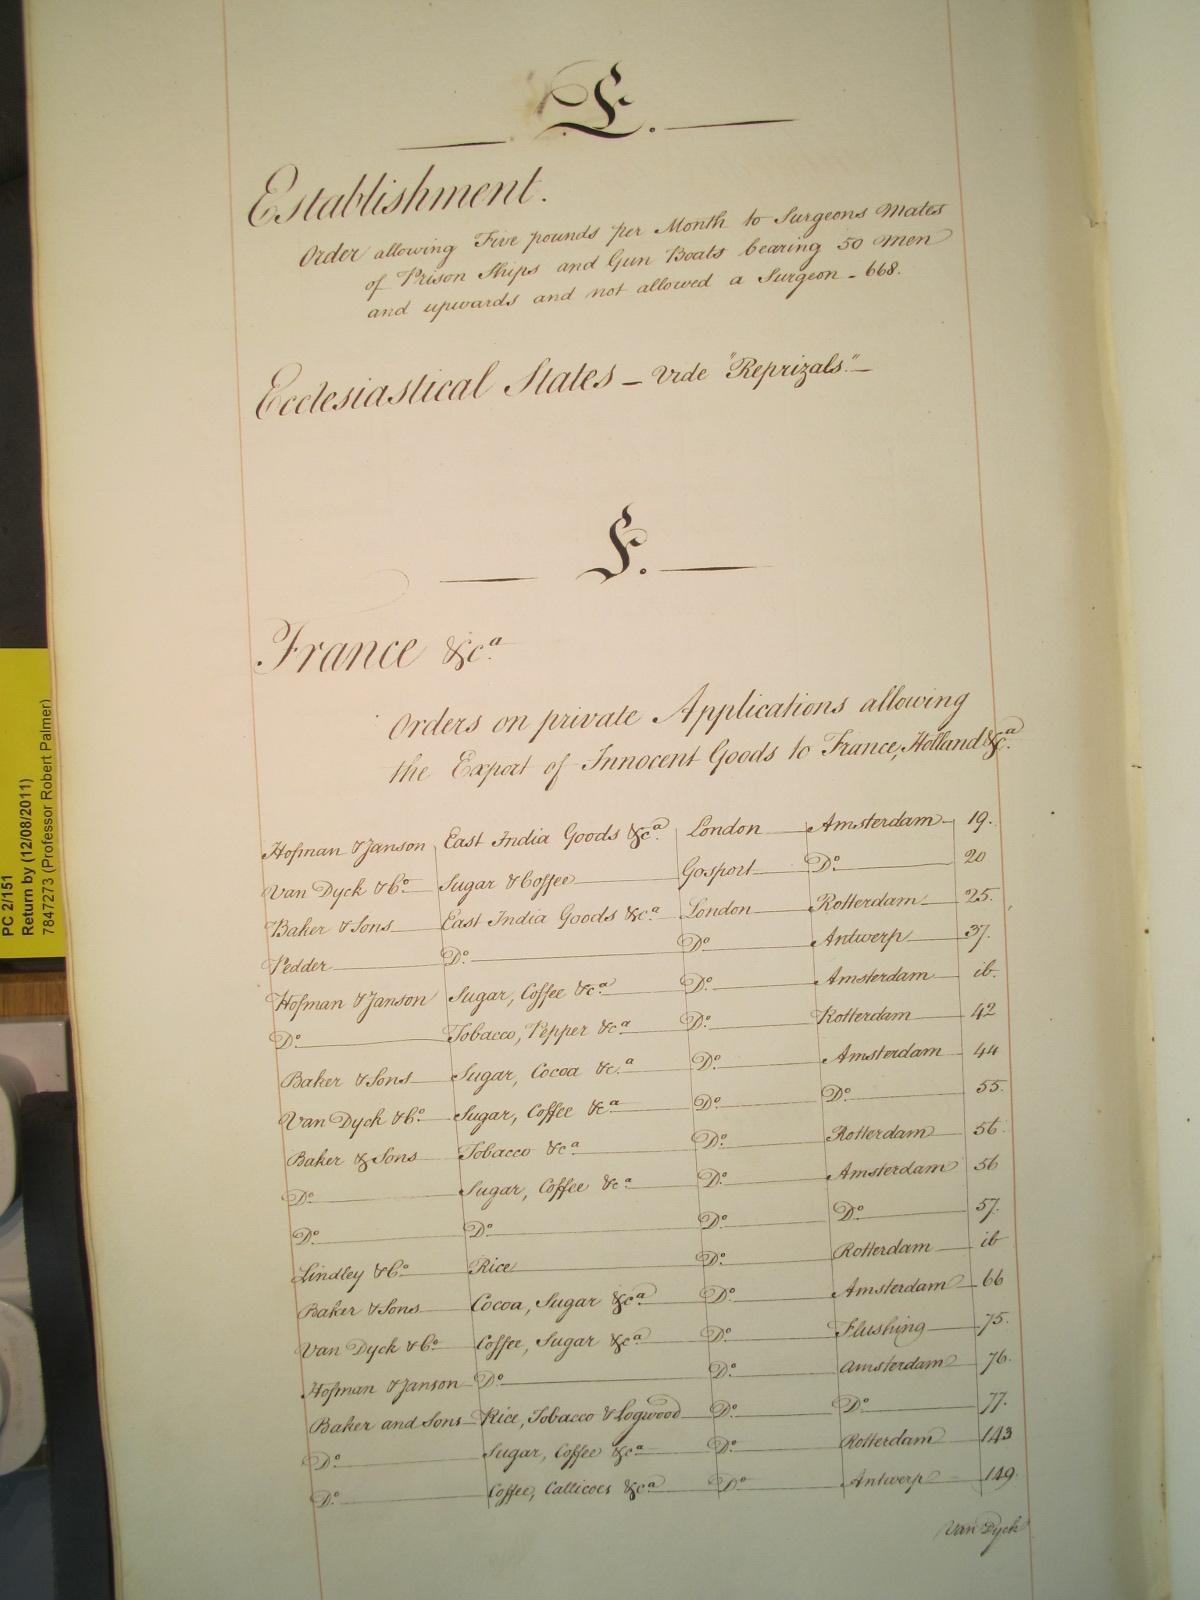 E.
Establishment.
Order allowing Five pounds per Month to Surgeons Mates
of Prison Ships and Gun Boats bearing 50 Men
and upwards and not allowed a Surgeon - 668.
Ecclesiastical States - Vide "Reprizals."
F.
France &ca.
Orders on private Applications allowing
the Export of Innocent Goods to France, Holland &ca.
Hofman & Janson East India Goods &ca. London Amsterdam 19.
Van Dyck & Co. Sugar & Coffee Gosport Do. 20
Baker & Sons East India Goods &ca. London Rotterdam 25.
Pedder Do. Do. Antwerp 37.
Hofman & Janson Sugar, Coffee &ca. Do. Amsterdam ib.
Do. Tobacco, Pepper &ca. Do. Rotterdam 42
Baker & Sons Sugar, Cocoa &ca. Do. Amsterdam 44
Van Dyck & Co. Sugar, Coffee &ca. Do. Do. 55.
Baker & Sons Tobacco &ca. Do. Rotterdam 56.
Do. Sugar, Coffee &ca. Do. Amsterdam 56
Do. Do. Do. Do. 57.
Lindley & Co. Rice Do. Rotterdam ib
Baker & Sons Cocoa, Sugar &ca. Do. Amsterdam 66
Van Dyck & Co. Coffee, Sugar &ca. Do. Flushing 75.
Hofman & Janson Do. Do. Amsterdam 76.
Baker and Sons Rice, Tobacco & Logwood Do. Do. 77.
Do. Sugar, Coffee &ca. Do. Rotterdam 143
Do. Coffee, Callicoes &ca. Do. Antwerp 149.
Van Dyck
PC 2/151
Return by (12/08/2011)
7847273 (Professor Robert Palmer)